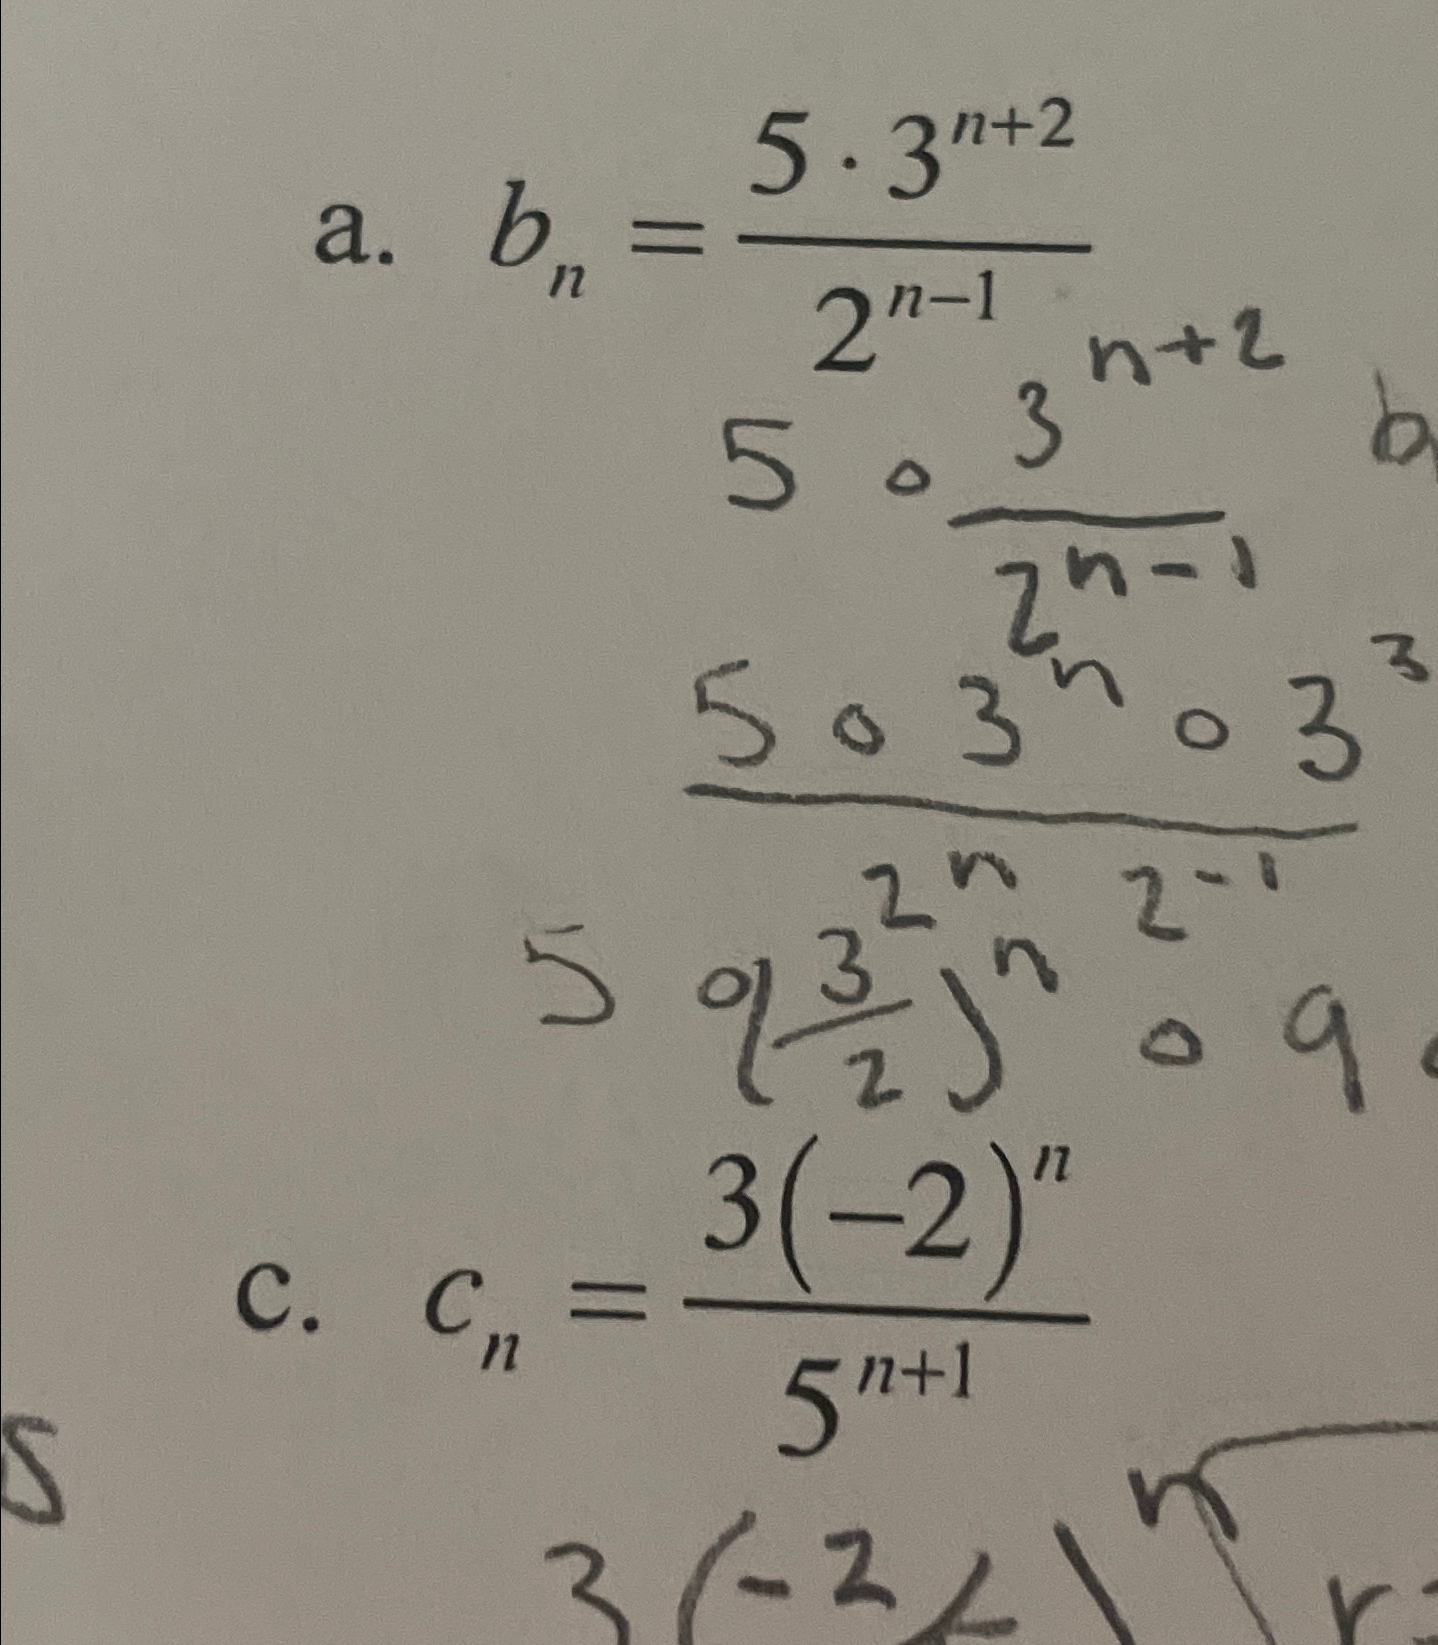 a. bₙ = (5 · 3^(n+2)) / (2^(n−1))
5 ∘ 3^(n+2) / 2^(n−1)
b
(5 ∘ 3^n ∘ 3^3) / (2^n 2^(−1))
5 ∘ (3/2)^n ∘ 9
c. cₙ = (3(−2)^n) / (5^(n+1))
5
3(−2/ )^n r